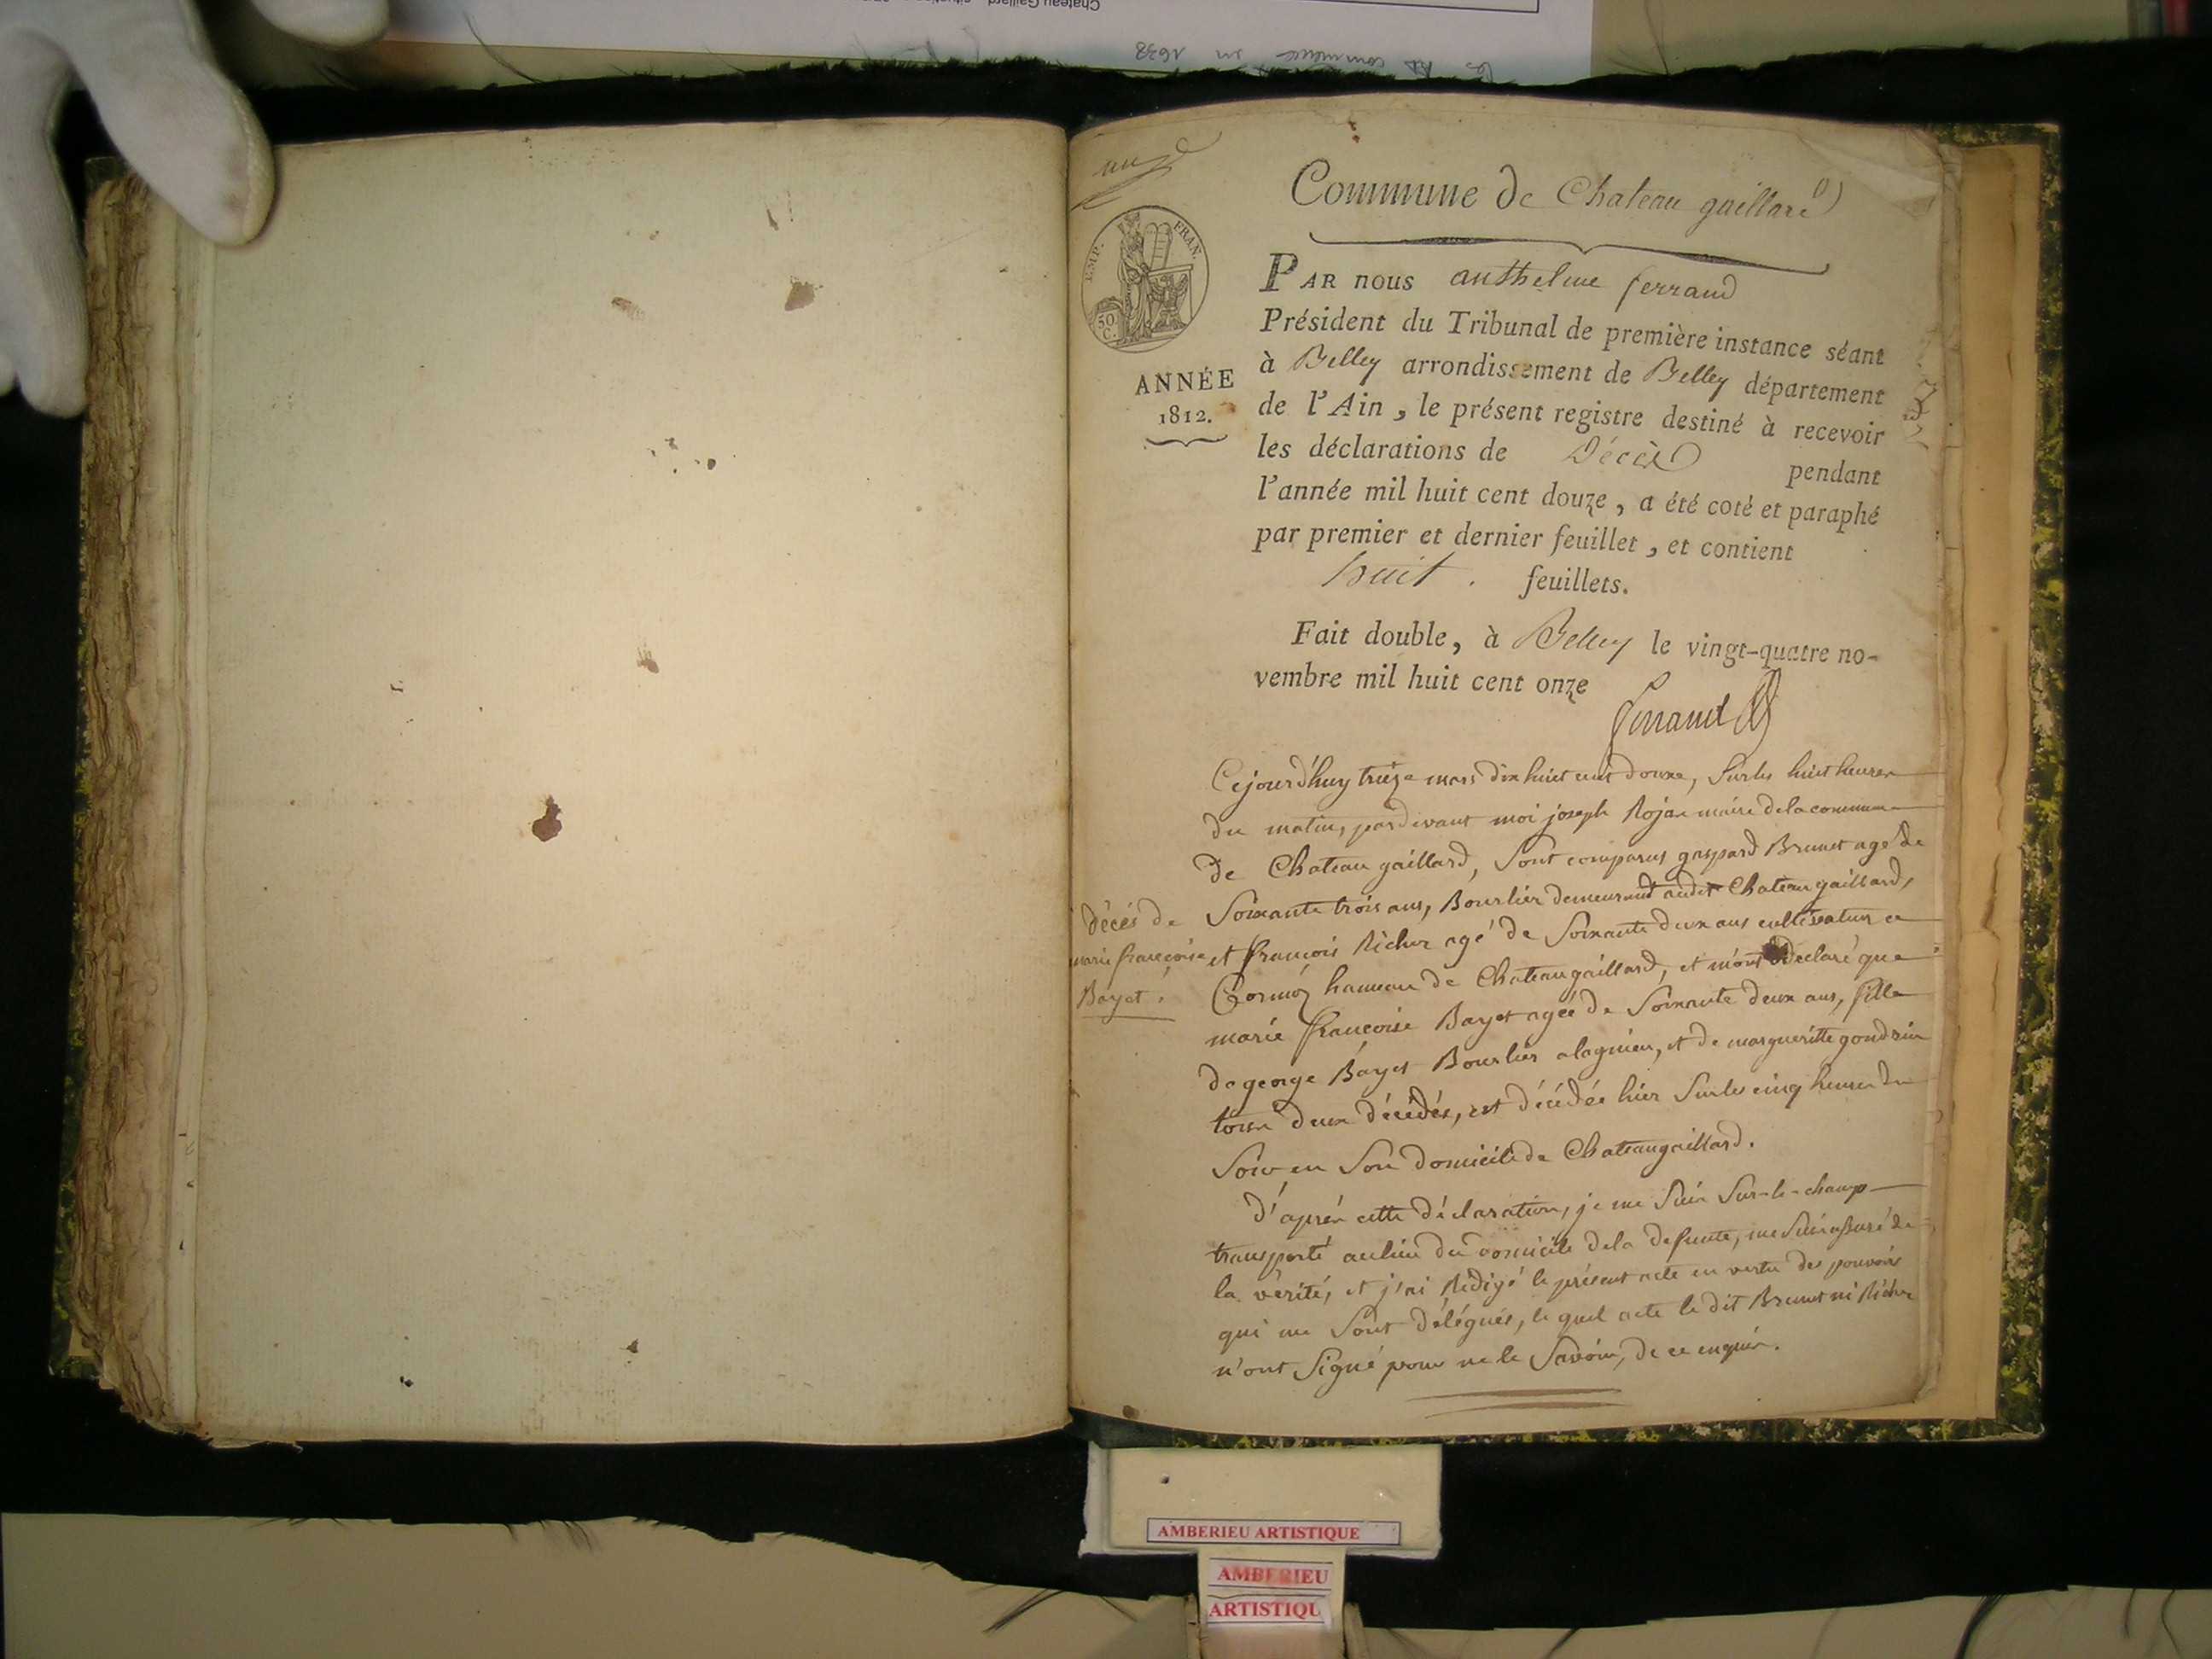 Commune de Chateau gaillard
EMP. FRAN.
50 C.
ANNÉE
1812.
PAR nous anthelme ferrand
Président du Tribunal de première instance séant
à Belley arrondissement de Belley département
de l'Ain, le présent registre destiné à recevoir
les déclarations de Décès pendant
l'année mil huit cent douze, a été coté et paraphé
par premier et dernier feuillet, et contient
huit. feuillets.
Fait double, à Belley le vingt-quatre no-
vembre mil huit cent onze
ferrand
Décés de
marie françoise
Bayet.
Cejourd'huy treize mars dix huit cent douze, Sur les huit heures
du matin, pardevant moi joseph Rojan maire de la commune
de Chateau gaillard, Sont comparus gaspard Brunet agé de
Soixante trois ans, Bourlier demeurant audit Chateau gaillard,
et françois Richer agé de Soixante deux ans cultivateur a
Cormoz hameau de Chateaugaillard, et m'ont declaré que
marie françoise Bayet agée de Soixante deux ans, fille
de george Bayet Bourlier a lagnieu, et de margueritte gondrin
tous deux décédés, est décédée hier Sur les cinq heures du
Soir en Son domicile de Chateaugaillard.
d'après cette déclaration, je me Suis Sur-le-champ
transporté au lieu du domicile de la defunte, me Suis assuré de
la vérité, et j'ai Rédigé le présent acte en vertu des pouvoirs
qui me Sont délégués, le quel acte le dit Brunet ni Richer
n'ont Signé pour ne le Savoir, de ce enquis.
AMBERIEU ARTISTIQUE
AMBERIEU
ARTISTIQU